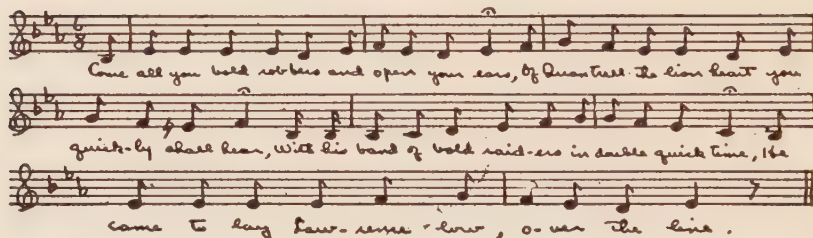 6
8
Come all you bold robbers and open your ears, Of Quantrell the lion heart you
quick-ly shall hear, With his band of bold raid-ers in double quick time, He
came to lay Law-rence low, o-ver the line.